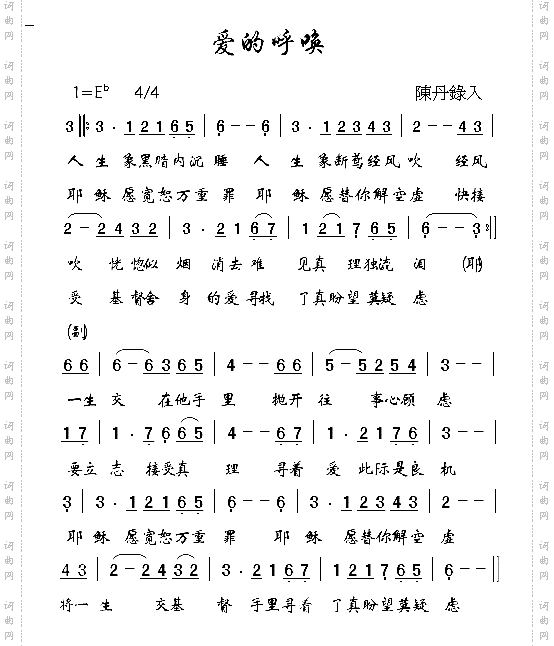 爱的呼唤
1=E♭ 4/4 陳丹錄入
3 ‖: 3 · 1 2 1 6 5 | 6 - - 6 | 3 · 1 2 3 4 3 | 2 - - 4 3 |
人 生 象黑暗内沉 睡 人 生 象断鸢经风 吹 经风
耶 稣 愿宽恕万重 罪 耶 稣 愿替你解空 虚 快接
2 - 2 4 3 2 | 3 · 2 1 6 7 | 1 2 1 7 6 5 | 6 - - 3 :‖
吹 恍 惚似 烟 消去 难 见真 理独流 泪 (耶)
受 基 督舍 身 的爱 寻找 了真盼望莫疑 虑
(副)
6 6 | 6 - 6 3 6 5 | 4 - - 6 6 | 5 - 5 2 5 4 | 3 - - |
一生 交 在他手 里 抛开 往 事心顾 虑
1 7 | 1 · 7 6 6 5 | 4 - - 6 7 | 1 · 2 1 7 6 | 3 - - |
要立 志 接受真 理 寻着 爱 此际是良 机
3 | 3 · 1 2 1 6 5 | 6 - - 6 | 3 · 1 2 3 4 3 | 2 - - |
耶 稣 愿宽恕万重 罪 耶 稣 愿替你解空 虚
4 3 | 2 - 2 4 3 2 | 3 · 2 1 6 7 | 1 2 1 7 6 5 | 6 - - ‖
将一 生 交基 督 手里寻着 了真盼望莫疑 虑
词曲网